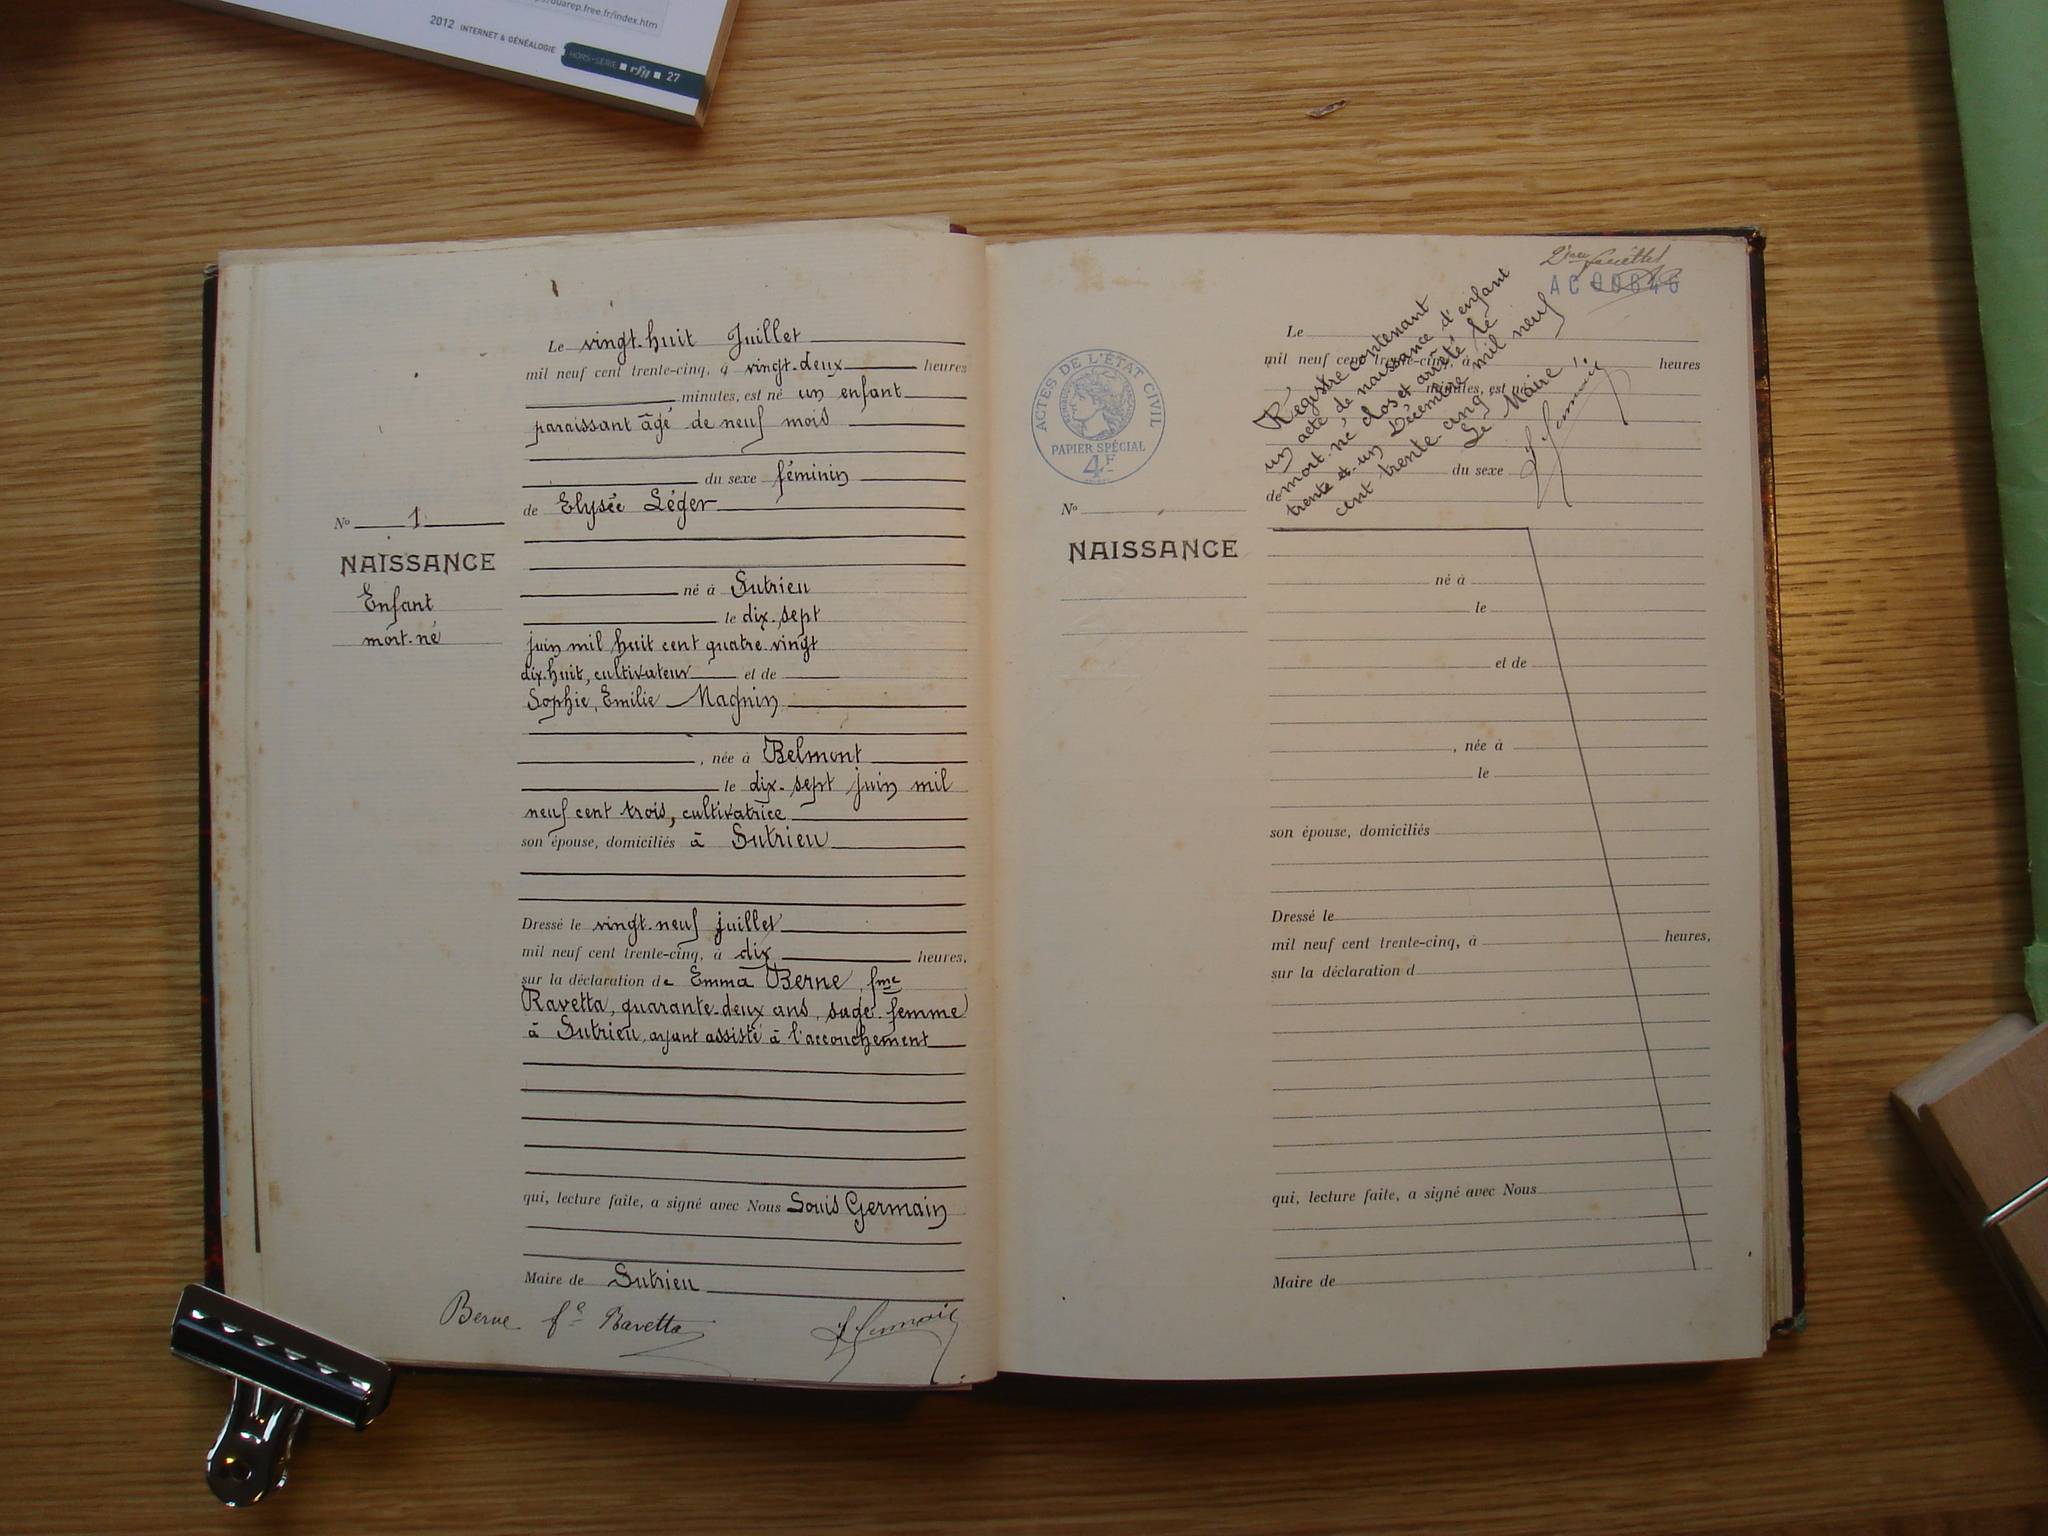 ouarep.free.fr/index.htm
2012 INTERNET & GÉNÉALOGIE HORS-SÉRIE rfg 27
Le vingt-huit Juillet
mil neuf cent trente-cinq, à vingt-deux heures
minutes, est né un enfant
paraissant âgé de neuf mois
du sexe féminin
de Elysée Léger
No 1
NAISSANCE
Enfant
mort-né
né à Sutrieu
le dix-sept
juin mil huit cent quatre-vingt
dix-huit, cultivateur et de
Sophie, Emilie Magnin
, née à Belmont
le dix-sept juin mil
neuf cent trois, cultivatrice
son épouse, domiciliés à Sutrieu
Dressé le vingt-neuf juillet
mil neuf cent trente-cinq, à dix heures,
sur la déclaration de Emma Berne, fme
Ravetta, quarante-deux ans, sage-femme
à Sutrieu, ayant assisté à l'accouchement
qui, lecture faite, a signé avec Nous Louis Germain
Maire de Sutrieu
Berne fe Ravetta
2ème feuillet
AC
ACTES DE L'ÉTAT CIVIL
PAPIER SPÉCIAL
4F
Registre contenant
un acte de naissance d'enfant
mort-né clos et arrêté le
trente et un Décembre mil neuf
cent trente-cinq
Le Maire
Le
mil neuf cent trente-cinq, à heures
minutes, est né
du sexe
de
No
NAISSANCE
né à
le
et de
, née à
le
son épouse, domiciliés
Dressé le
mil neuf cent trente-cinq, à heures,
sur la déclaration d
qui, lecture faite, a signé avec Nous
Maire de